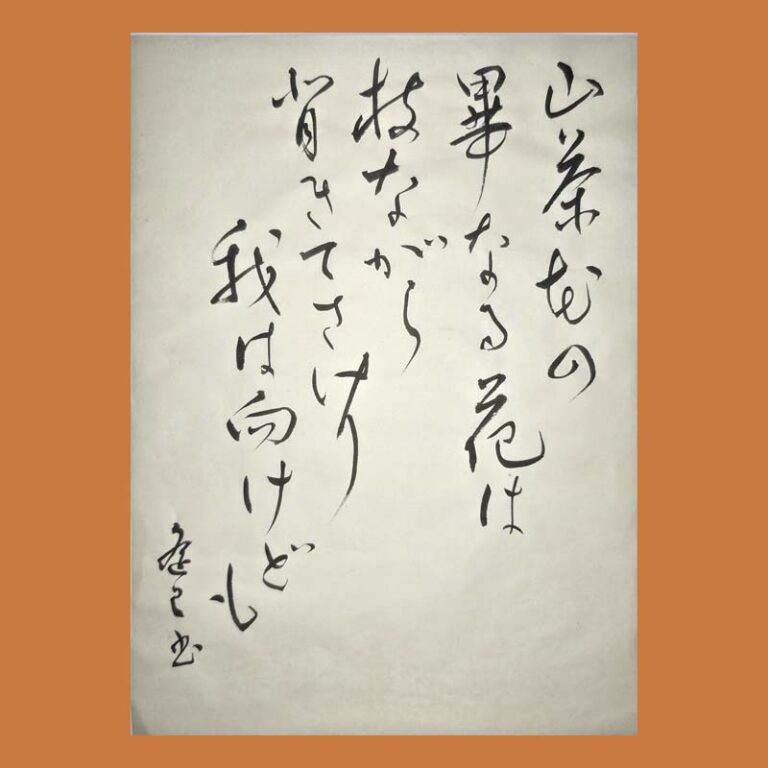 山茶花の
畢なる花は
枝ながら
背きてさけり
我は向けども
書